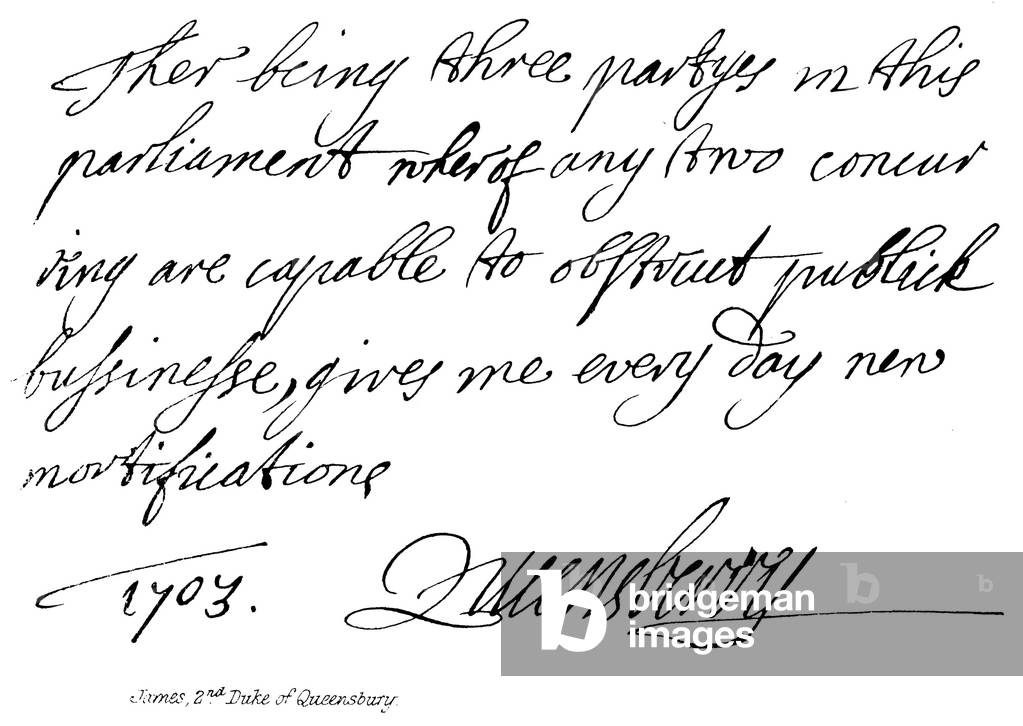 Ther being three partyes in this
parliament wherof any two concur
ring are capable to obstruct publick
bussinesse, gives me every day new
mortifications
1703. Queensberry
James, 2nd Duke of Queensbury.
b bridgeman images
b
b